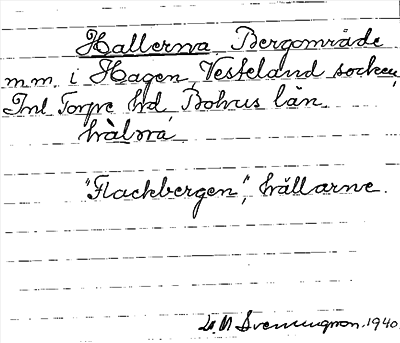 Hallerna Bergområde
m.m. i Hagen, Vesteland socken,
Inl Torpe hd, Bohus län.
hàlna
"Flackbergen", hällarne.
Svenungson. 1940